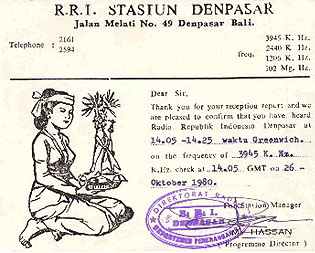 R.R.I. STASIUN DENPASAR
Jalan Melati No. 49 Denpasar Bali.
Telephone : 2161
2594
freq.
3945 K. Hz.
2440 K Hz.
1206 K Hz.
102 Mg. Hz.
Dear Sir,
Thank you for your reception report and we
are pleased to confirm that you have heard
Radia Republik Indonesia Denpasar at
14.05 -14.25 waktu Greenwich
on the frequency of 3945 K. Hz.
K.Hz check at 14.05 GMT on 26-
Oktober 1980.
Station Manager
DIREKTORAT RADIO
R. R. I.
DENPASAR
DEPARTEMEN PENERANGAN
HASSAN
( Programme Director )